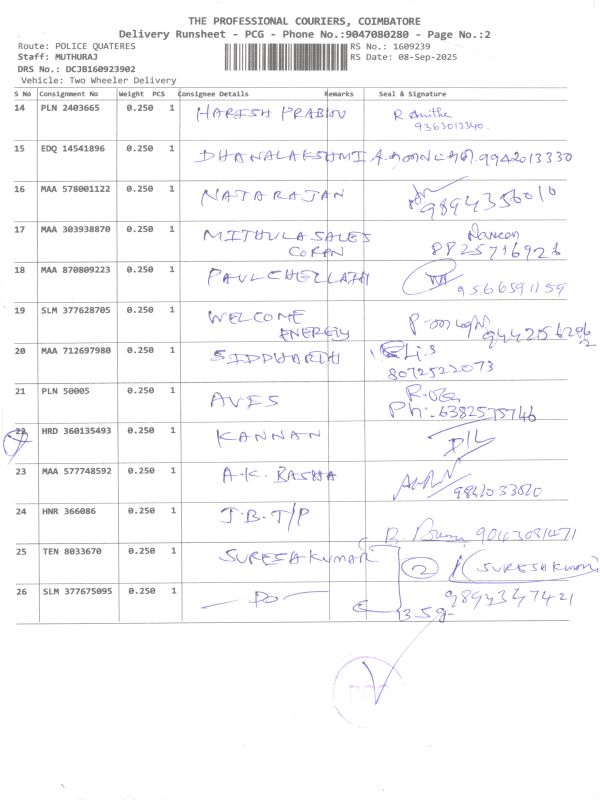 THE PROFESSIONAL COURIERS, COIMBATORE
Delivery Runsheet - PCG - Phone No.:9047080280 - Page No.:2
Route: POLICE QUATERES RS No.: 1609239
Staff: MUTHURAJ RS Date: 08-Sep-2025
DRS No.: DCJB160923902
Vehicle: Two Wheeler Delivery
S No Consignment No Weight PCS Consignee Details Remarks Seal & Signature
14 PLN 2403665 0.250 1 HARISH PRABHU R. Anitha
9363012340.
15 EDQ 14541896 0.250 1 DHANALAKSHMI 9942013330
16 MAA 578001122 0.250 1 NATARAJAN 9894356010
17 MAA 303938870 0.250 1 MITHULA SALES Naveen
CORPN
18 MAA 870809223 0.250 1 PAULCHELLAIH 9566591159
19 SLM 377628705 0.250 1 WELCOME
ENERGIY
20 MAA 712697980 0.250 1 SIDDHARTH
8072522073
21 PLN 50005 0.250 1 AVES
Ph:- 6382575746
22 HRD 360135493 0.250 1 KANNAN D/L
23 MAA 577748592 0.250 1 A.K. BASHA
9842033520
24 HNR 366086 0.250 1 J.B.T/P
B. 9043081471
25 TEN 8033670 0.250 1 SURESHKUMAR 2 (SURESHKUMAR)
26 SLM 377675095 0.250 1 — DO — 9894347421